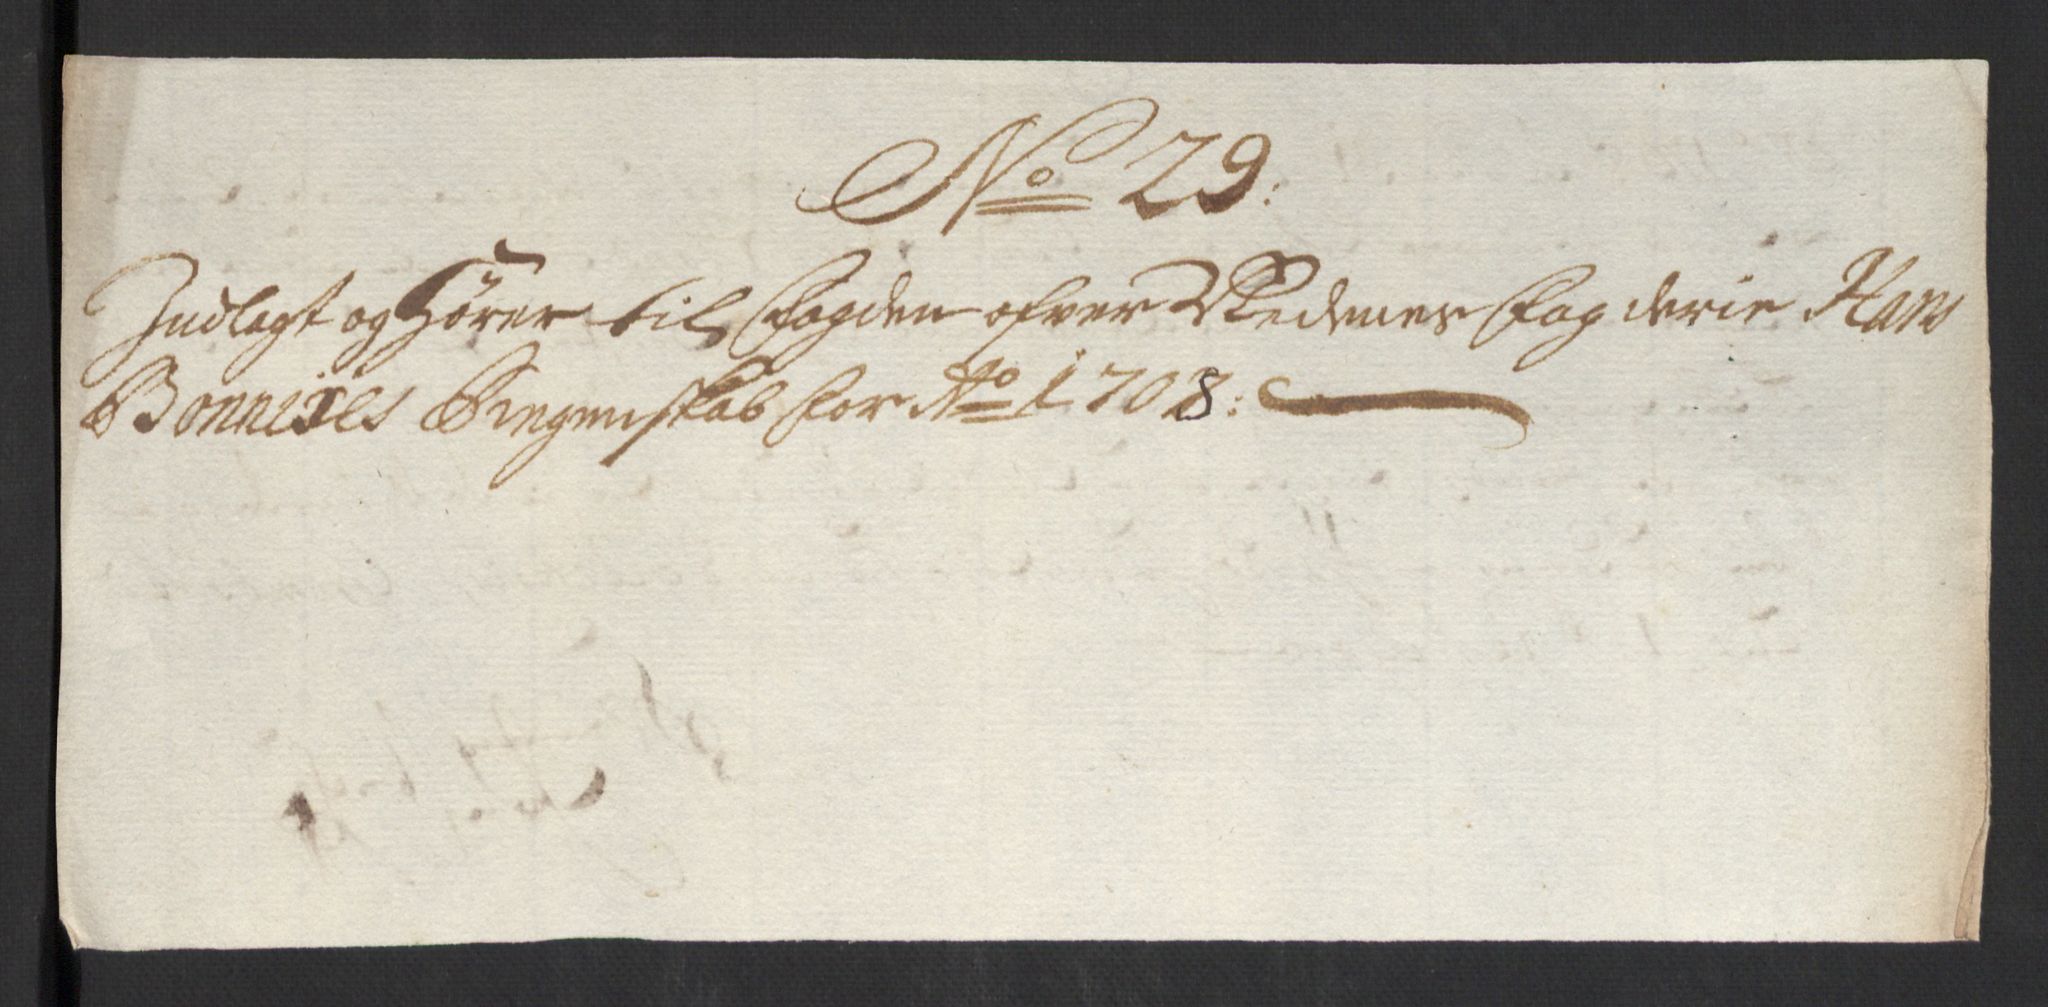 No 29:
Indlagt og Hører til Fogden ofver Nedenes Fogderie Hans
Bonnixes Regenskab for Ao 1708: